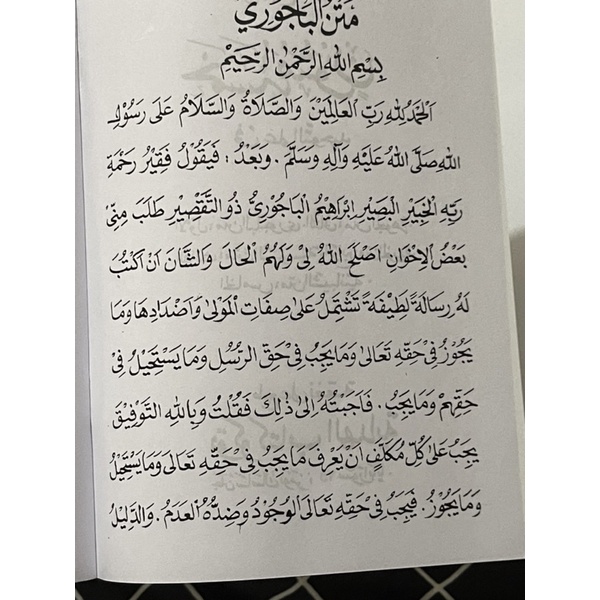 مَتْنُ الْبَاجُوْرِيْ
بِسْمِ اللهِ الرَّحْمٰنِ الرَّحِيْمِ
اَلْحَمْدُ لِلّٰهِ رَبِّ الْعَالَمِيْنَ وَالصَّلَاةُ وَالسَّلَامُ عَلَى رَسُوْلِ
اللهِ صَلَّى اللهُ عَلَيْهِ وَآلِهِ وَسَلَّمَ . وَبَعْدُ : فَيَقُوْلُ فَقِيْرُ رَحْمَةِ
رَبِّهِ الْخَبِيْرِ الْبَصِيْرِ اِبْرَاهِيْمُ الْبَاجُوْرِيُّ ذُو التَّقْصِيْرِ طَلَبَ مِنِّيْ
بَعْضُ الْاِخْوَانِ اَصْلَحَ اللهُ لِيْ وَلَهُمُ الْحَالَ وَالشَّانَ اَنْ اَكْتُبَ
لَهُ رِسَالَةً لَطِيْفَةً تَشْتَمِلُ عَلَى صِفَاتِ الْمَوْلَى وَاَضْدَادِهَا وَمَا
يَجُوْزُ فِيْ حَقِّهِ تَعَالَى وَمَا يَجِبُ فِيْ حَقِّ الرُّسُلِ وَمَا يَسْتَحِيْلُ فِيْ
حَقِّهِمْ وَمَا يَجِبُ . فَاَجَبْتُهُ اِلَى ذٰلِكَ فَقُلْتُ وَبِاللهِ التَّوْفِيْقُ
يَجِبُ عَلَى كُلِّ مُكَلَّفٍ اَنْ يَعْرِفَ مَا يَجِبُ فِيْ حَقِّهِ تَعَالَى وَمَا يَسْتَحِيْلُ
وَمَا يَجُوْزُ . فَيَجِبُ فِيْ حَقِّهِ تَعَالَى الْوُجُوْدُ وَضِدُّهُ الْعَدَمُ . وَالدَّلِيْلُ